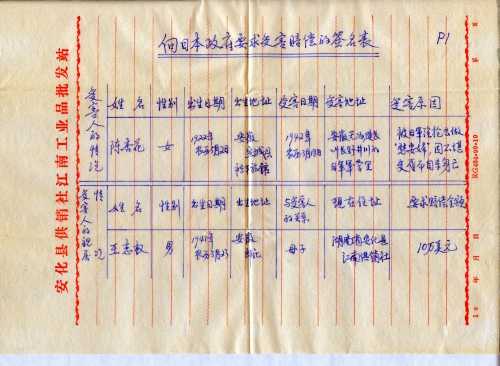 向日本政府要求受害赔偿的签名表
P1
安化县供销社江南工业品批发站
受害人的情况
姓名 性别 出生日期 出生地址 受害日期 受害地址 受害原因
陈杏花 女 1922年 安徽 1942年 安徽
农历3月2日
被日军说抢去做
"慰安妇",因不堪
受辱而自尽自己
日军军营里
受害人的亲属情况
姓名 性别 出生日期 出生地址 与受害人的关系 现在住址 要求赔偿金额
王志权 男 1941年 安徽 母子 湖南省安化县 10万美元
农历3月23
江南供销社
RG404·40·10
年 月 日
第 页